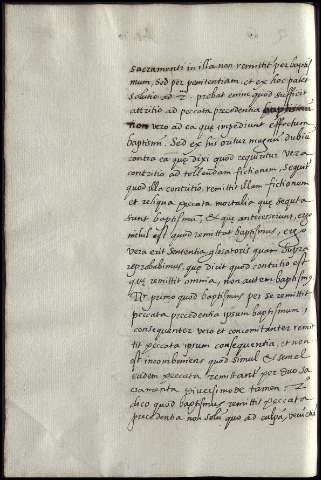 sacramenti in illa non remittit per baptis
mum, sed per penitentiam. et ex hoc patet
solutio ad 2. probat enim quod sufficit
attritio ad peccata precedentia baptismum
non vero ad ea que impediunt effectum
baptismi. Sed ex his oritur magnum dubium
contra ea que dixi quod requiritur vera
contritio ad tollendam fictionem, sequitur
quod illa contritio, remittit illam fictionem
et reliqua peccata mortalia que sequuta
sunt baptismum, & que antecesserunt, ergo
nihil est quod remittat baptismus, ergo
vera erit sententia glosatoris quam supra
reprobavimus, que dicit quod contritio est
que remittit omnia, non autem baptismus
primo quod baptismus per se remittit
peccata precedentia ipsum baptismum,
consequenter vero et concomitanter remit
tit peccata ipsum consequentia, et non
est inconveniens quod simul et semel
eadem peccata remittant per duo sa
cramenta diversimode tamen. 2.
dico quod baptismus remittit peccata
precedentia non solum quo ad culpam,